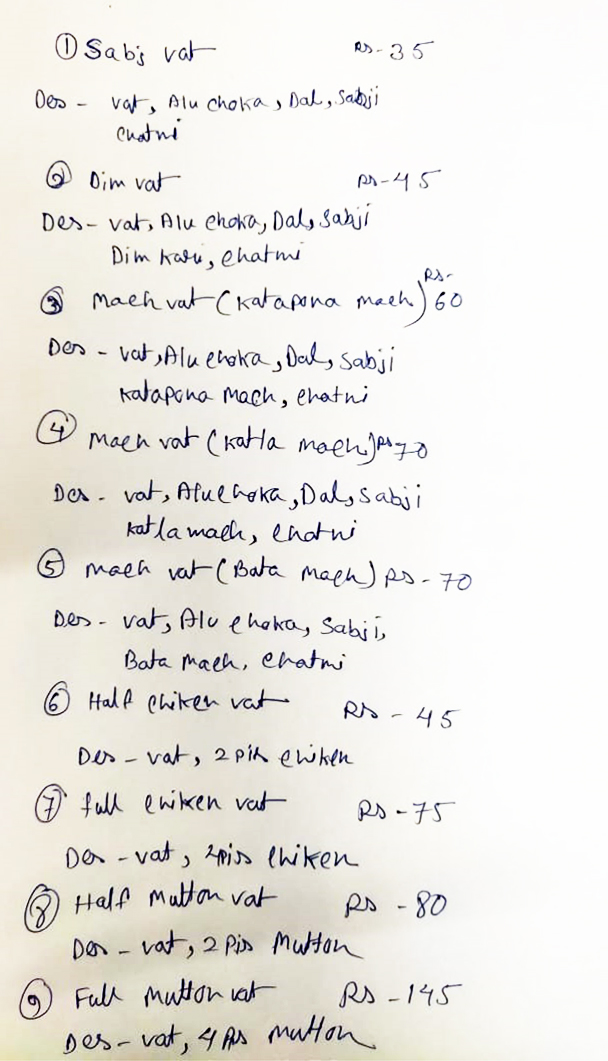 ① Sabji vat Rs-35
Des - vat, Alu choka, Dal, Sabji
chatni
② Dim vat Rs-45
Des - vat, Alu choka, Dal, Sabji
Dim Kari, chatni
Rs-
③ Mach vat (Katapona mach) 60
Des - vat, Alu choka, Dal, Sabji
Katapona Mach, chatni
④ Mach vat (Katla mach) Rs 70
Des - vat, Alu choka, Dal, Sabji
Katla mach, chatni
⑤ Mach vat (Bata mach) Rs - 70
Des - vat, Alu choka, Sabji,
Bata Mach, chatni
⑥ Half chiken vat Rs - 45
Des - vat, 2 pis chiken
⑦ full chiken vat Rs - 75
Des - vat, pis chiken
⑧ Half Mutton vat Rs - 80
Des - vat, 2 Pis Mutton
⑨ Full Mutton vat Rs - 145
Des - vat, 4 Ps mutton